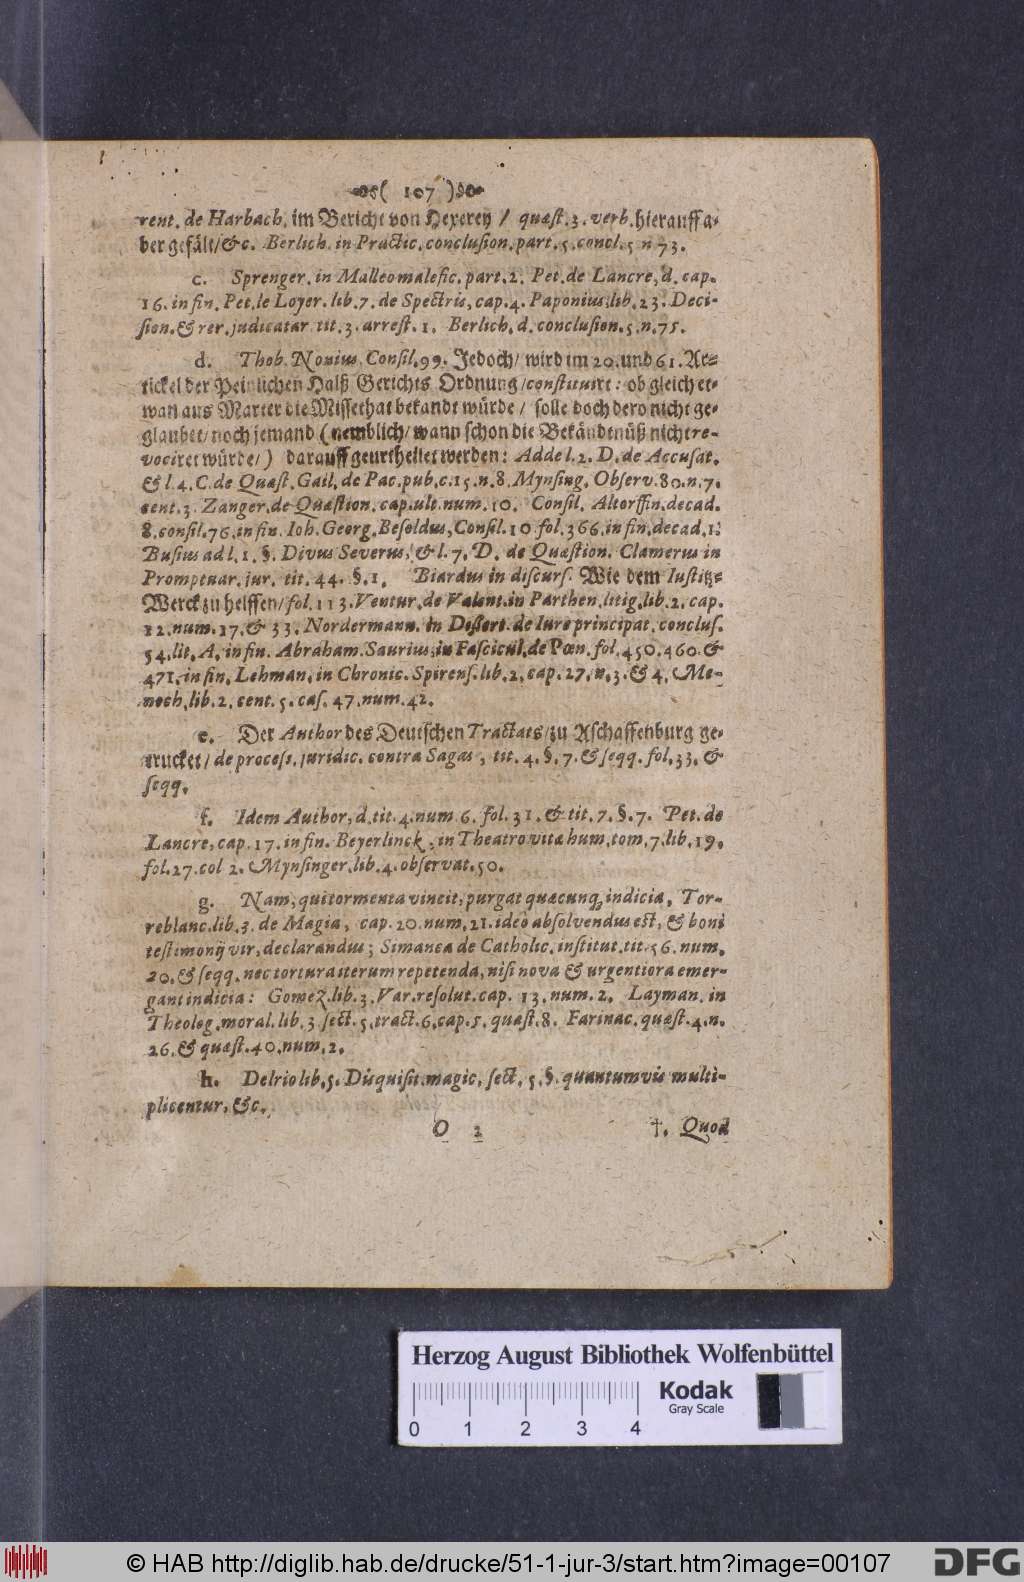 ( 107 )
rent. de Harbach. im Bericht von Hexerey / quæst. 3. verb. hierauff a-
ber gefält/ &c. Berlich. in Practic. conclusion. part. 5. concl. 5 n 73.
c. Sprenger. in Malleo malefic. part. 2. Pet. de Lancre, d. cap.
16. in fin. Pet. le Loyer. lib. 7. de Spectris, cap. 4. Paponius, lib. 23. Deci-
sion. & rer. judicatar. tit. 3. arrest. 1. Berlich. d. conclusion. 5. n. 75.
d. Thob. Nonius. Consil. 99. Jedoch/ wird im 20. und 61. Ar-
tickel der Peinlichen Halß Gerichts Ordnung/ constituirt: ob gleich et-
wan aus Marter die Missethat bekandt würde / solle doch dero nicht ge-
glaubet/ noch jemand (nemblich/ wann schon die Bekändtnüß nicht re-
vociret würde/) darauff geurtheilet werden: Adde l. 2. D. de Accusat.
& l. 4. C. de Quæst. Gail. de Pac. pub. c. 15. n. 8. Mynsing. Observ. 80. n. 7.
cent. 3. Zanger. de Quæstion. cap. ult. num. 10. Consil. Altorffin. decad.
8. consil. 76. in fin. Ioh. Georg. Besoldus, Consil. 10 fol. 366. in fin. decad. 1.
Busius ad l. 1. §. Divus Severus. & l. 7. D. de Quæstion. Clamerus in
Promptuar. jur. tit. 44. §. 1. Biardus in discurs. Wie dem Iustitz-
Werck zu helffen/ fol. 113. Ventur. de Valent. in Parthen. litig. lib. 2. cap.
12. num. 17. & 33. Nordermann. in Dissert. de Iure principat. conclus.
54. lit. A. in fin. Abraham. Saurius, in Fascicul. de Pœn. fol. 450. 460. &
471. in fin. Lehman. in Chronic. Spirens. lib. 2. cap. 27. n. 3. & 4. Me-
noch. lib. 2. cent. 5. cas. 47. num. 42.
e. Der Author des Deutschen Tractats/ zu Aschaffenburg ge-
trucket / de process. juridic. contra Sagas, tit. 4. §. 7. & seqq. fol. 33. &
seqq.
f. Idem Author, d. tit. 4. num 6. fol. 31. & tit. 7. §. 7. Pet. de
Lancre, cap. 17. in fin. Beyerlinck, in Theatro vitæ hum. tom. 7. lib. 19.
fol. 27. col 2. Mynsinger. lib. 4. observat. 50.
g. Nam, qui tormenta vincit, purgat quæcunq; indicia, Tor-
reblanc. lib. 3. de Magia, cap. 20. num. 21. ideò absolvendus est, & boni
testimonij vir, declarandus; Simanca de Catholic. institut. tit. 56. num.
20. & seqq. nec tortura iterum repetenda, nisi nova & urgentiora emer-
gant indicia: Gomez. lib. 3. Var. resolut. cap. 13. num. 2. Layman. in
Theolog. moral. lib. 3 sect. 5. tract. 6. cap. 5. quæst. 8. Farinac. quæst. 4. n.
26. & quæst. 40. num. 2.
h. Delrio lib. 5. Disquisit. magic. sect. 5. §. quantumvis multi-
plicentur, &c.
O 2 †. Quod
Herzog August Bibliothek Wolfenbüttel
Kodak
Gray Scale
0 1 2 3 4
© HAB http://diglib.hab.de/drucke/51-1-jur-3/start.htm?image=00107
DFG